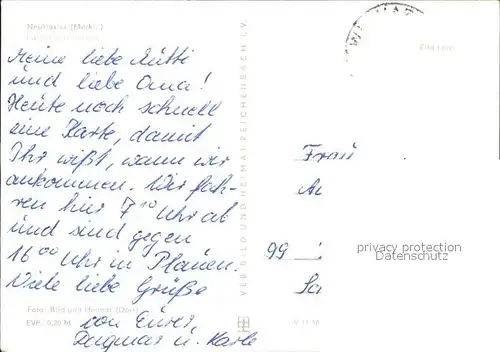 Neuklobst (Meckl.)
Meine liebe Mutti
und liebe Oma!
Heute noch schnell
eine Karte, damit
Ihr wißt, wann wir
ankommen. Wir fah-
ren hier 7¹⁰ Uhr ab
und sind gegen
16⁰⁰ Uhr in Plauen.
Viele liebe Grüße
von Eurer
Dagmar u. Karle
Foto: Bild und Heimat (Darr)
EVP: 0,20 M
VEB BILD UND HEIMAT REICHENBACH I. V.
Frau
99
privacy protection
somepostcards